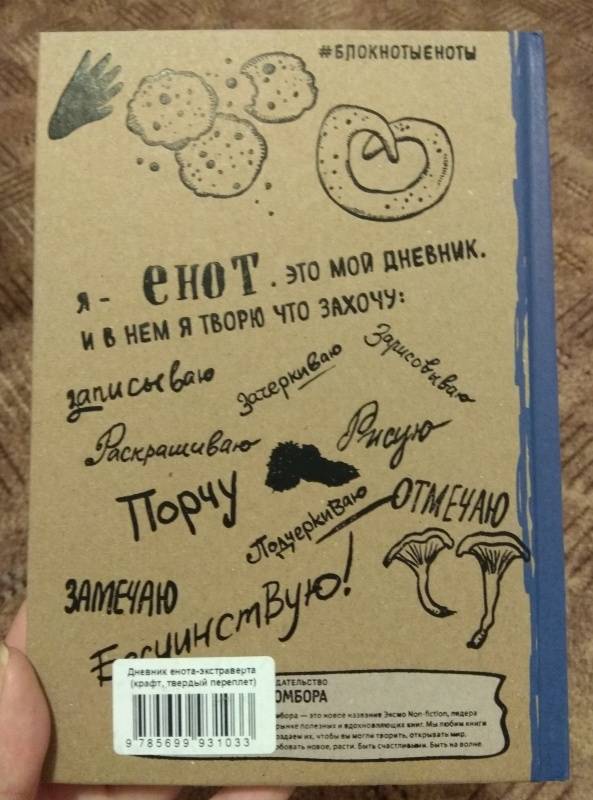 #БЛОКНОТЫЕНОТЫ
Я - ЕНОТ. ЭТО МОЙ ДНЕВНИК.
И В НЕМ Я ТВОРЮ ЧТО ЗАХОЧУ:
записываю
Зачеркиваю
Зарисовываю
Раскрашиваю
Рисую
Порчу
Подчеркиваю
ОТМЕЧАЮ
ЗАМЕЧАЮ
Бесчинствую!
Дневник енота-экстраверта
(крафт, твердый переплет)
9 785699 931033
— это новое название Эксмо Non-fiction, лидера
рынке полезных и вдохновляющих книг. Мы любим книги
чтобы вы могли творить, открывать мир,
новое, расти. Быть счастливыми. Быть на волне.